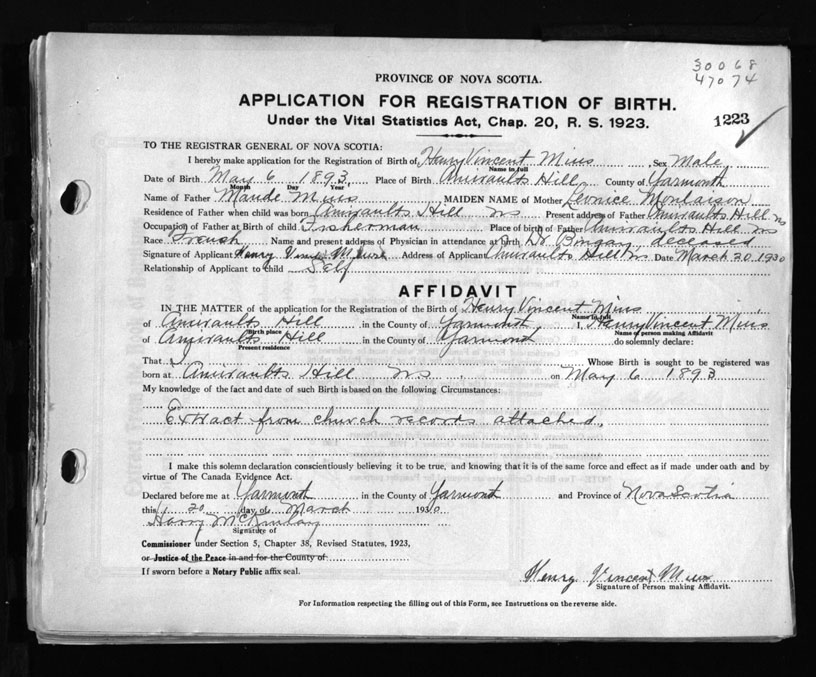 30068
47074
PROVINCE OF NOVA SCOTIA.
APPLICATION FOR REGISTRATION OF BIRTH.
Under the Vital Statistics Act, Chap. 20, R. S. 1923.
1223
TO THE REGISTRAR GENERAL OF NOVA SCOTIA:
I hereby make application for the Registration of Birth of Henry Vincent Mius Sex Male
Name in full
Date of Birth May 6 1893 Place of Birth Amiraults Hill County of Yarmouth
Month Day Year
Name of Father Maude Muis MAIDEN NAME of Mother
Residence of Father when child was born Amiraults Hill NS Present address of Father Amiraults Hill NS
Occupation of Father at Birth of child Fisherman Place of birth of Father Amiraults Hill NS
Race French Name and present address of Physician in attendance at Birth Dr Bingay deceased
Signature of Applicant Henry Vincent Address of Applicant Amiraults Hill NS Date March 20 1930
Relationship of Applicant to Child Self
AFFIDAVIT
IN THE MATTER of the application for the Registration of the Birth of Henry Vincent Mius
Name in full
of Amiraults Hill in the County of Yarmouth I, Henry Vincent Mius
Birth place Name of person making Affidavit
of Amiraults Hill in the County of Yarmouth do solemnly declare:
Present residence
That I Whose Birth is sought to be registered was
born at Amiraults Hill NS on May 6 1893
My knowledge of the fact and date of such Birth is based on the following Circumstances:
Extract from church records attached.
I make this solemn declaration conscientiously believing it to be true, and knowing that it is of the same force and effect as if made under oath and by
virtue of The Canada Evidence Act.
Declared before me at Yarmouth in the County of Yarmouth and Province of Nova Scotia
this 20 day of March 1930
Harry
Signature of
Commissioner under Section 5, Chapter 38, Revised Statutes, 1923,
or Justice of the Peace in and for the County of
If sworn before a Notary Public affix seal.
Henry Vincent Mius
Signature of Person making Affidavit.
For Information respecting the filling out of this Form, see Instructions on the reverse side.